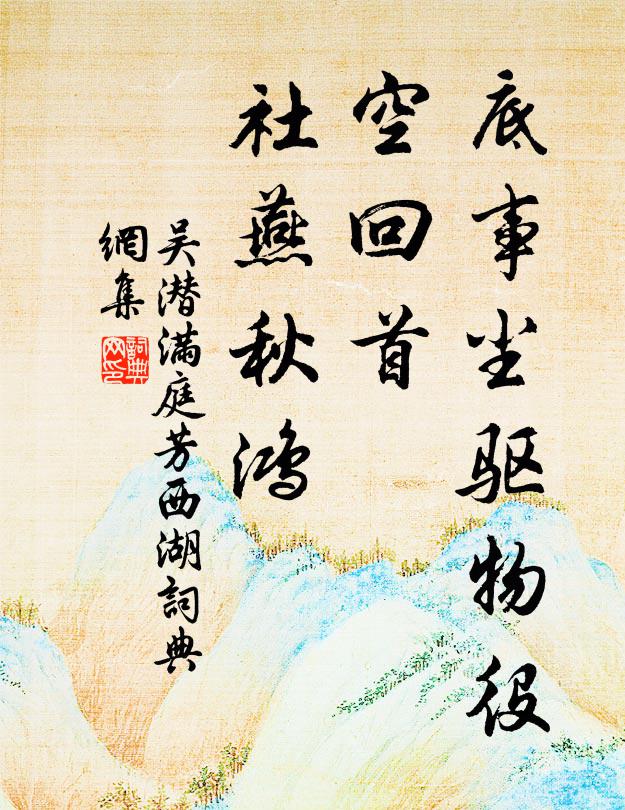 底事尘驱物役
空回首
社燕秋鸿
吴潜满庭芳西湖詞典
網集
詞典
网印